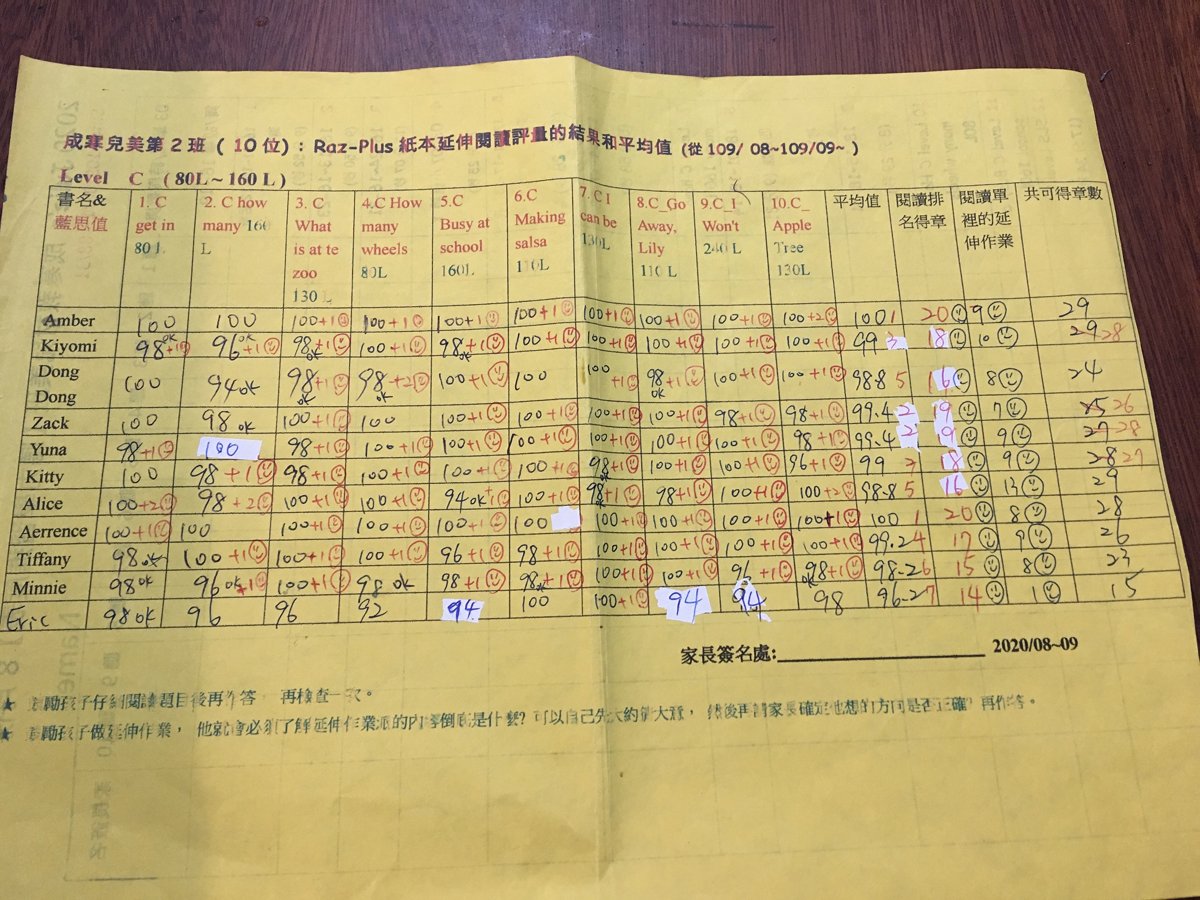 成寒兒美第 2 班 ( 10 位) : Raz-Plus 紙本延伸閱讀評量的結果和平均值 (從 109/ 08~109/09~ )
Level C ( 80L ~ 160 L )
書名& 藍思值 1. C get in 80 L 2. C how many 160 L 3. C What is at te zoo 130 L 4.C How many wheels 80L 5.C Busy at school 160L 6.C Making salsa 110L 7. C I can be 130L 8.C_Go Away, Lily 110 L 9.C_I Won't 240 L 10.C_ Apple Tree 130L 平均值 閱讀排名得章 閱讀單裡的延伸作業 共可得章數
Amber 100 100 100+1 100+1 100+1 100+1 100+1 100+1 100+1 100+2 100 1 20 9 29
Kiyomi 98 ok +1 96 ok +1 98 ok +1 100+1 98 ok +1 100+1 100+1 100+1 100+1 100+1 99 3 18 10 29 28
Dong Dong 100 94 ok 98 ok +1 98 ok +2 100+1 100 100+1 98+1 ok 100+1 100+1 98.8 5 16 8 24
Zack 100 98 ok 100+1 100 100+1 100+1 100+1 100+1 98+1 98+1 99.4 2 19 7 25 26
Yuna 98+1 100 98+1 100+1 100+1 100+1 100+1 100+1 100+1 98+1 99.4 2 19 9 27 28
Kitty 100 98+1 98+1 100+1 100+1 100+1 98+1 100+1 100+1 96+1 99 18 9 28 27
Alice 100+2 98+2 100+1 100+1 94 ok+1 100+1 98+1 98+1 100+1 100+2 98.8 5 16 13 29
Aerrence 100+1 100 100+1 100+1 100+1 100 100+1 100+1 100+1 100+1 100 1 20 8 28
Tiffany 98 ok 100+1 100+1 100+1 96+1 98+1 100+1 100+1 100+1 100+1 99.2 4 17 9 26
Minnie 98 ok 96 ok+1 100+1 98 ok 98+1 98 ok +1 100+1 100+1 96+1 98 ok +1 98.2 6 15 8 23
Eric 98 ok 96 96 92 94 100 100+1 94 94 98 96.2 7 14 1 15
家長簽名處: 2020/08~09
★ 鼓勵孩子仔細閱讀題目後再作答， 再檢查一次。
★ 鼓勵孩子做延伸作業， 他就會必須了解延伸作業派的內容倒底是什麼? 可以自己先大約猜大意， 然後再請家長確定他想的方向是否正確? 再作答。